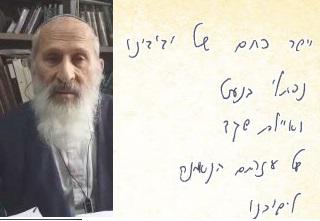 יישר כחם של ידידינו
נפתלי בנעט
ואיילת שקד
על עזרתם הנאמנה
לישיבתנו